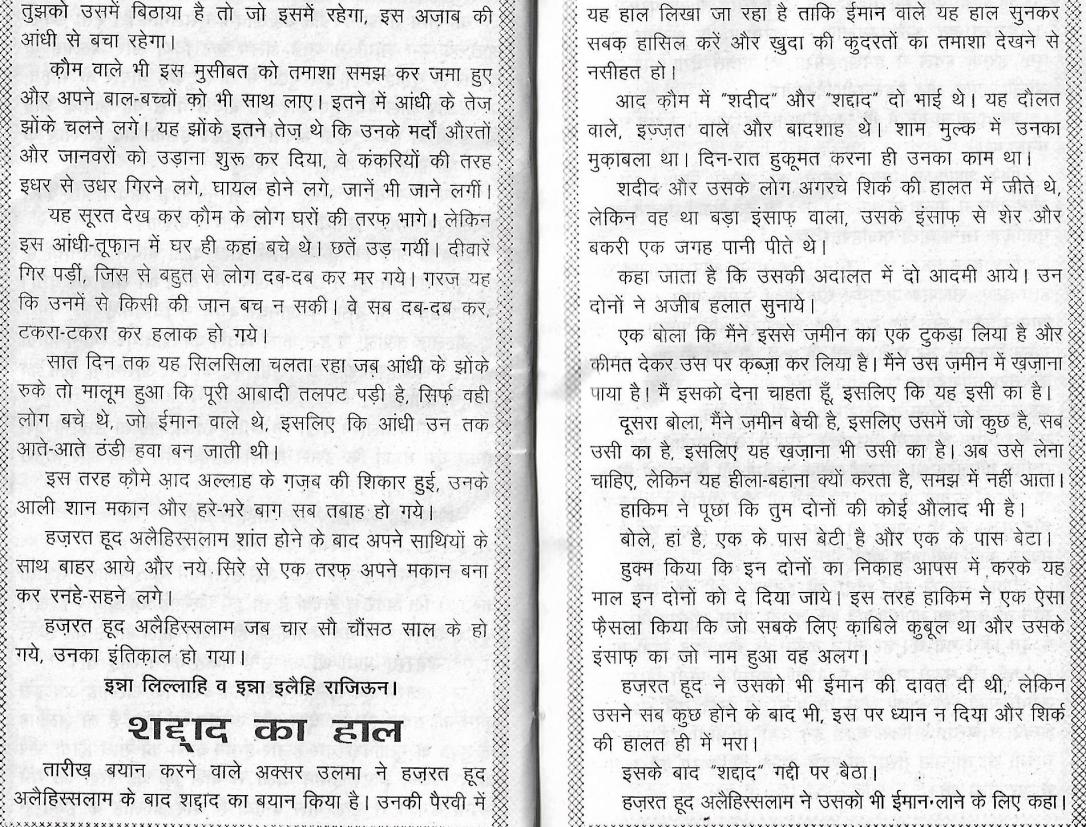 तुझको उसमें बिठाया है तो जो इसमें रहेगा, इस अज़ाब की
आंधी से बचा रहेगा।
क़ौम वाले भी इस मुसीबत को तमाशा समझ कर जमा हुए
और अपने बाल-बच्चों को भी साथ लाए। इतने में आंधी के तेज़
झोंके चलने लगे। यह झोंके इतने तेज़ थे कि उनके मर्दों औरतों
और जानवरों को उड़ाना शुरू कर दिया, वे कंकरियों की तरह
इधर से उधर गिरने लगे, घायल होने लगे, जानें भी जाने लगीं।
यह सूरत देख कर क़ौम के लोग घरों की तरफ़ भागे। लेकिन
इस आंधी-तूफ़ान में घर ही कहां बचे थे। छतें उड़ गयीं। दीवारें
गिर पड़ीं, जिस से बहुत से लोग दब-दब कर मर गये। ग़रज़ यह
कि उनमें से किसी की जान बच न सकी। वे सब दब-दब कर,
टकरा-टकरा कर हलाक हो गये।
सात दिन तक यह सिलसिला चलता रहा जब आंधी के झोंके
रुके तो मालूम हुआ कि पूरी आबादी तलपट पड़ी है, सिर्फ़ वही
लोग बचे थे, जो ईमान वाले थे, इसलिए कि आंधी उन तक
आते-आते ठंडी हवा बन जाती थी।
इस तरह क़ौमे आद अल्लाह के ग़ज़ब की शिकार हुई, उनके
आली शान मकान और हरे-भरे बाग़ सब तबाह हो गये।
हज़रत हूद अलैहिस्सलाम शांत होने के बाद अपने साथियों के
साथ बाहर आये और नये सिरे से एक तरफ़ अपने मकान बना
कर रनहे-सहने लगे।
हज़रत हूद अलैहिस्सलाम जब चार सौ चौंसठ साल के हो
गये, उनका इंतिक़ाल हो गया।
इन्ना लिल्लाहि व इन्ना इलैहि राजिऊन।
शद्दाद का हाल
तारीख़ बयान करने वाले अक्सर उलमा ने हज़रत हूद
अलैहिस्सलाम के बाद शद्दाद का बयान किया है। उनकी पैरवी में
यह हाल लिखा जा रहा है ताकि ईमान वाले यह हाल सुनकर
सबक़ हासिल करें और ख़ुदा की क़ुदरतों का तमाशा देखने से
नसीहत हो।
आद क़ौम में "शदीद" और "शद्दाद" दो भाई थे। यह दौलत
वाले, इज़्ज़त वाले और बादशाह थे। शाम मुल्क में उनका
मुक़ाबला था। दिन-रात हुकूमत करना ही उनका काम था।
शदीद और उसके लोग अगरचे शिर्क की हालत में जीते थे,
लेकिन वह था बड़ा इंसाफ़ वाला, उसके इंसाफ़ से शेर और
बकरी एक जगह पानी पीते थे।
कहा जाता है कि उसकी अदालत में दो आदमी आये। उन
दोनों ने अजीब हलात सुनाये।
एक बोला कि मैंने इससे ज़मीन का एक टुकड़ा लिया है और
कीमत देकर उस पर क़ब्ज़ा कर लिया है। मैंने उस ज़मीन में ख़ज़ाना
पाया है। मैं इसको देना चाहता हूँ, इसलिए कि यह इसी का है।
दूसरा बोला, मैंने ज़मीन बेची है, इसलिए उसमें जो कुछ है, सब
उसी का है, इसलिए यह ख़ज़ाना भी उसी का है। अब उसे लेना
चाहिए, लेकिन यह हीला-बहाना क्यों करता है, समझ में नहीं आता।
हाकिम ने पूछा कि तुम दोनों की कोई औलाद भी है।
बोले, हां है, एक के पास बेटी है और एक के पास बेटा।
हुक्म किया कि इन दोनों का निकाह आपस में करके यह
माल इन दोनों को दे दिया जाये। इस तरह हाकिम ने एक ऐसा
फ़ैसला किया कि जो सबके लिए क़ाबिले क़ुबूल था और उसके
इंसाफ़ का जो नाम हुआ वह अलग।
हज़रत हूद ने उसको भी ईमान की दावत दी थी, लेकिन
उसने सब कुछ होने के बाद भी, इस पर ध्यान न दिया और शिर्क
की हालत ही में मरा।
इसके बाद "शद्दाद" गद्दी पर बैठा।
हज़रत हूद अलैहिस्सलाम ने उसको भी ईमान लाने के लिए कहा।